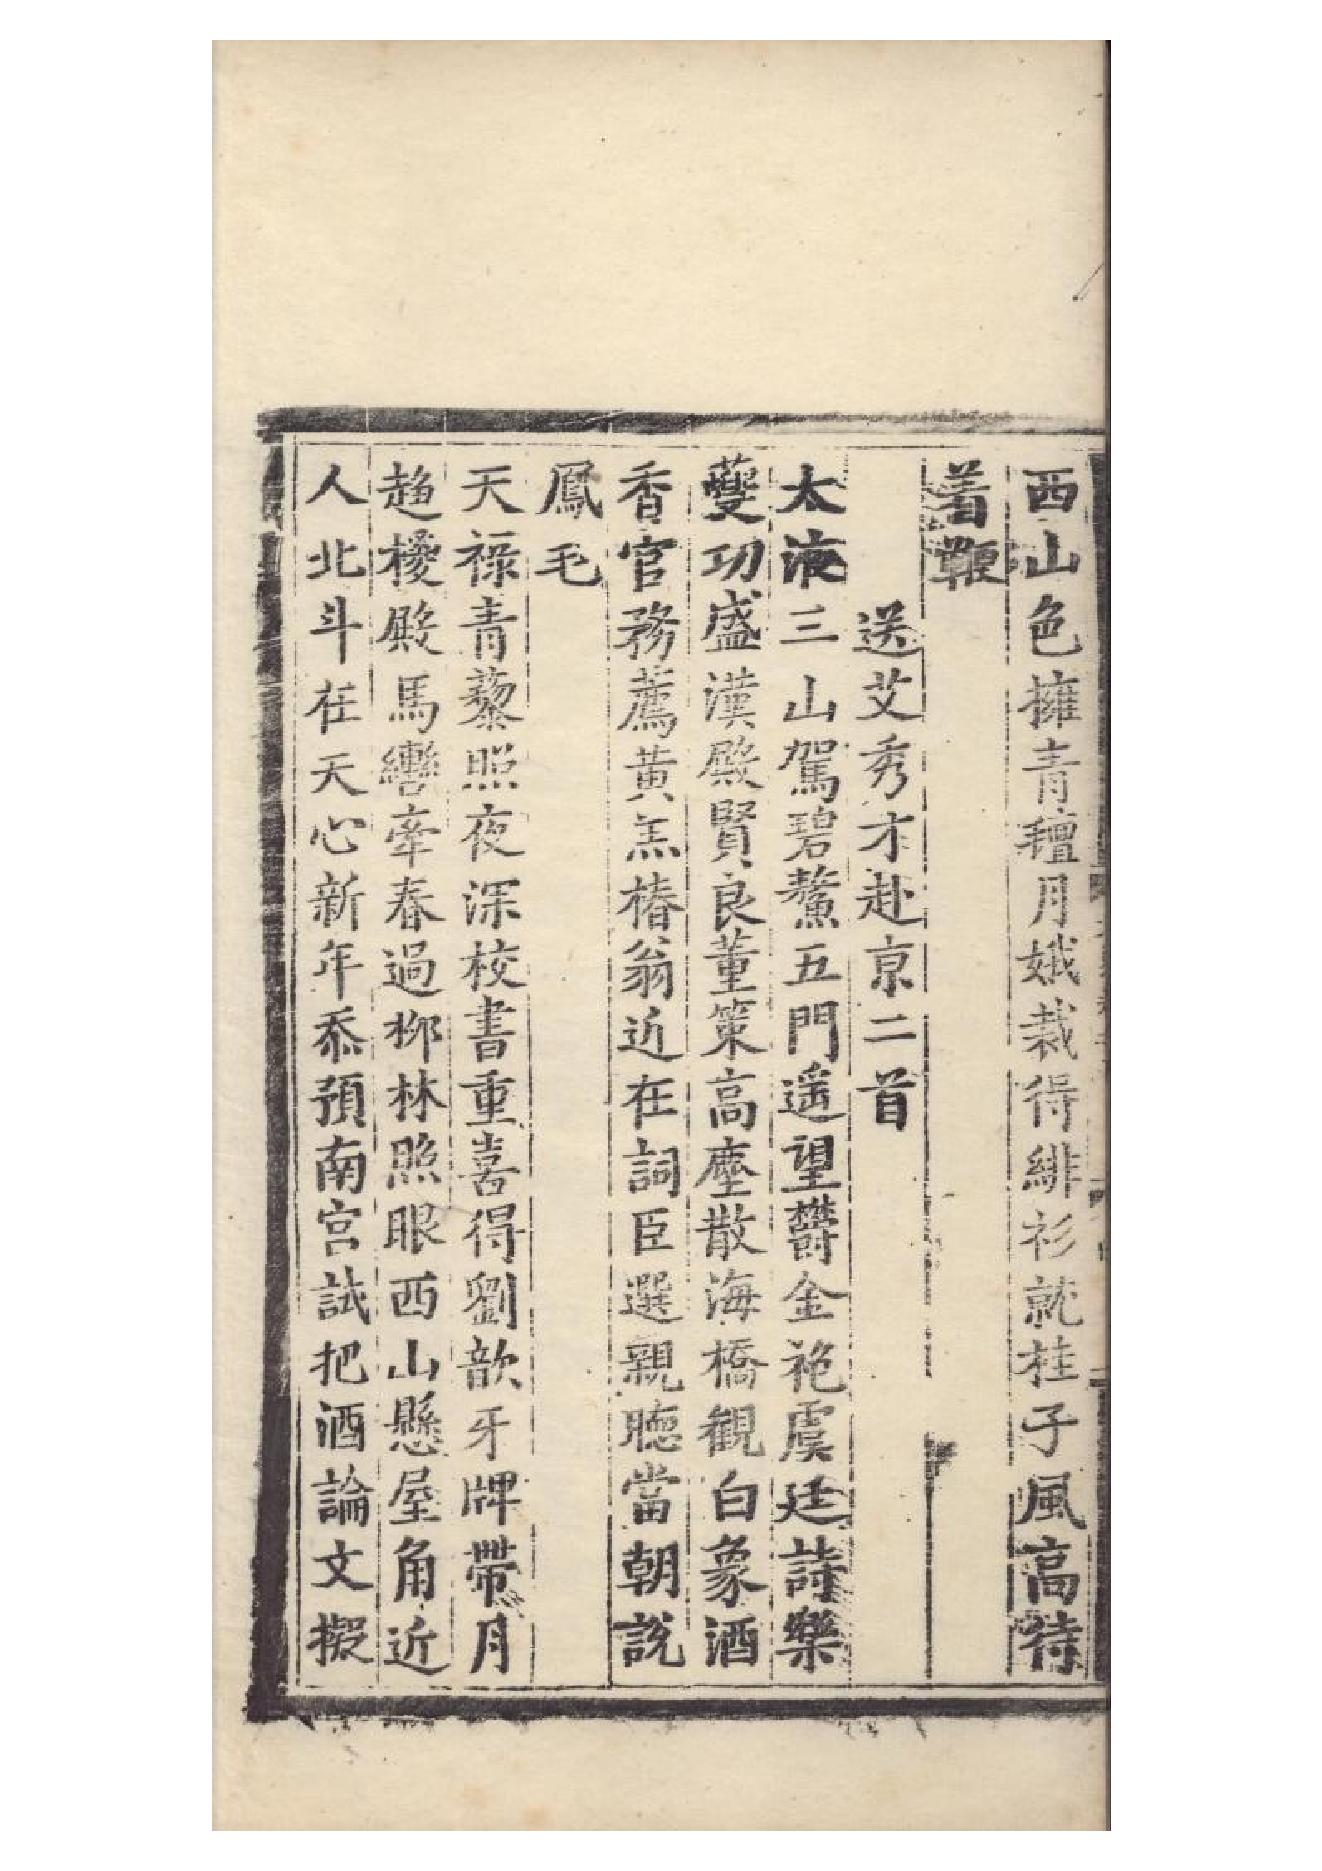 西山色擁青氊月娥裁得緋衫就桂子風高待
着鞭
送艾秀才赴京二首
太液三山駕碧鰲五門遥望鬱金袍虞廷詩樂
夔功盛漢殿賢良董策高塵散海橋観白象酒
香官務薦黄羔椿翁近在詞臣選親聴當朝說
鳳毛
天禄青藜照夜深校書重喜得劉歆牙牌帶月
趍椶殿馬轡牽春過柳林照眼西山懸屋角近
人北斗在天心新年忝預南宮試把酒論文擬